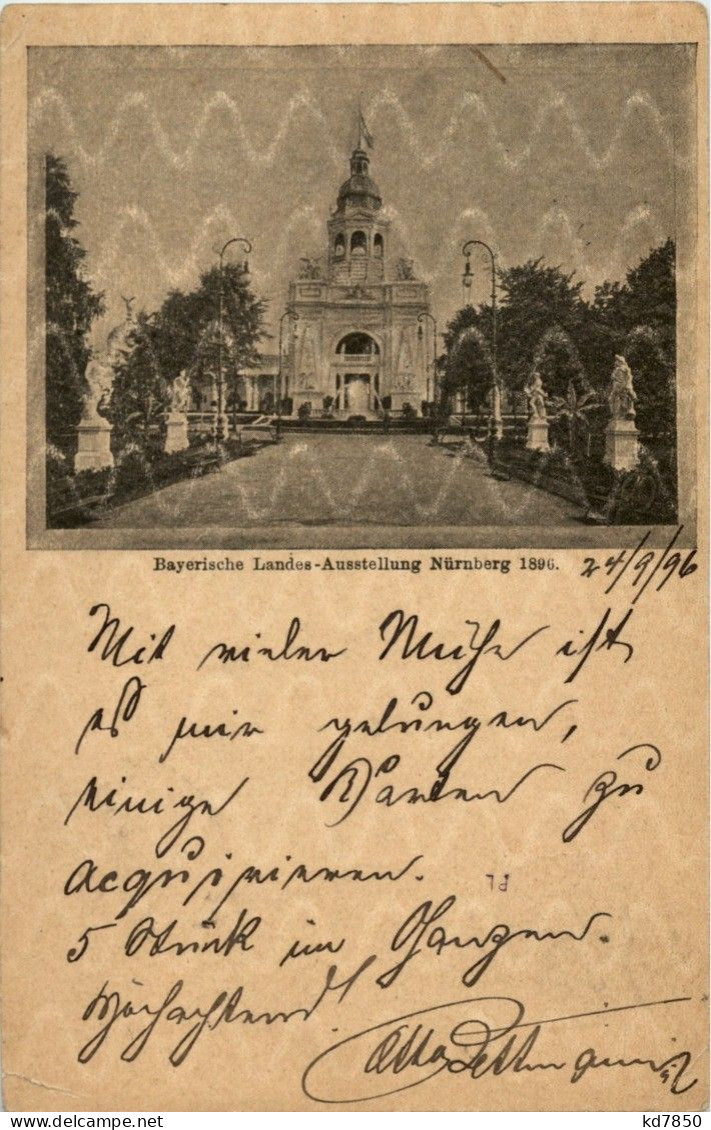 Bayerische Landes-Ausstellung Nürnberg 1896.
24/9/96
Mit vieler Mühe ist
es mir gelungen,
einige Karten zu
acquirieren.
PL
5 Stück im Ganzen.
Hochachtend!
Otto
kd7850